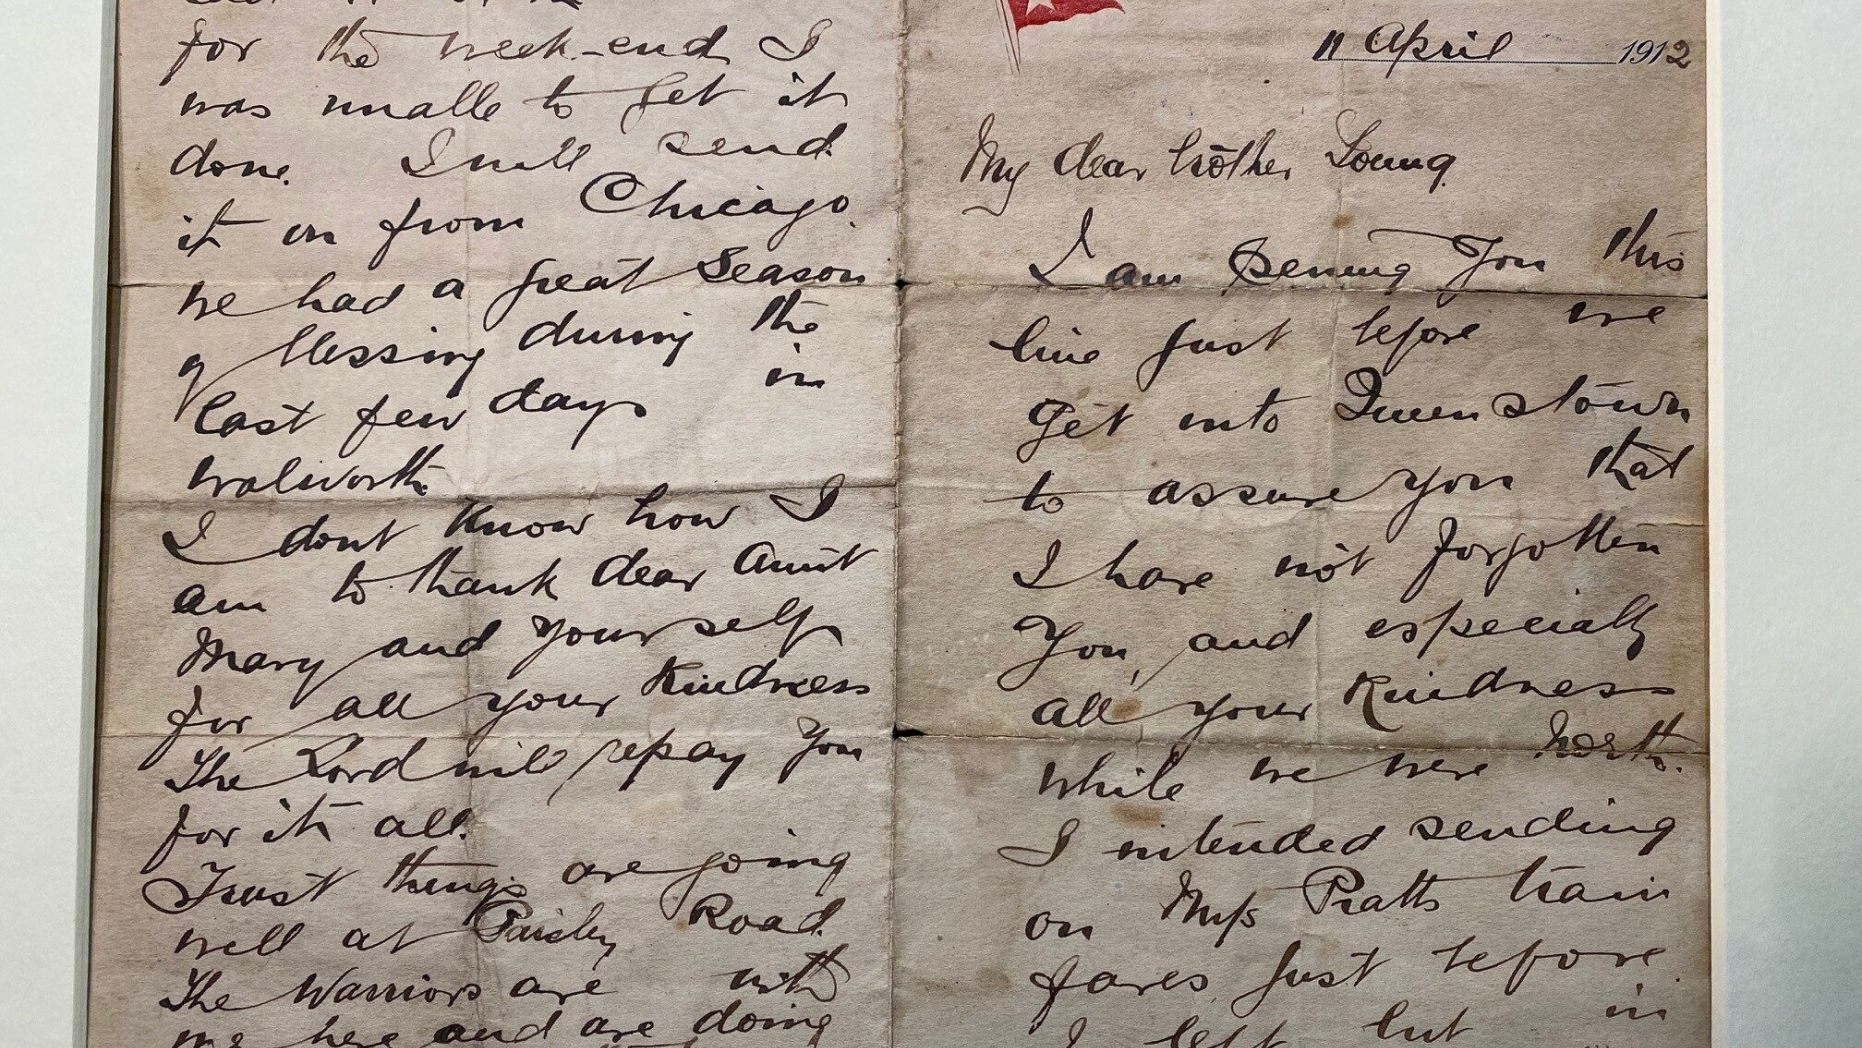 11 April 1912
My dear brother Young
I am pening You this
line just before we
get into Queenstown
to assure you that
I have not forgotten
You, and especially
all your Kindness
while we were North.
I intended sending
on Miss Pratts train
fares just before
I left but in
for the week-end I
was unable to get it
done. I will send
it on from Chicago.
we had a great Season
of blessing during the
last few days in
walworth.
I dont know how I
am to thank dear Aunt
Mary and yourself
for all your Kindness
The Lord will repay you
for it all.
Trust things are going
well at Paisley Road.
The Warriors are with
me here and are doing